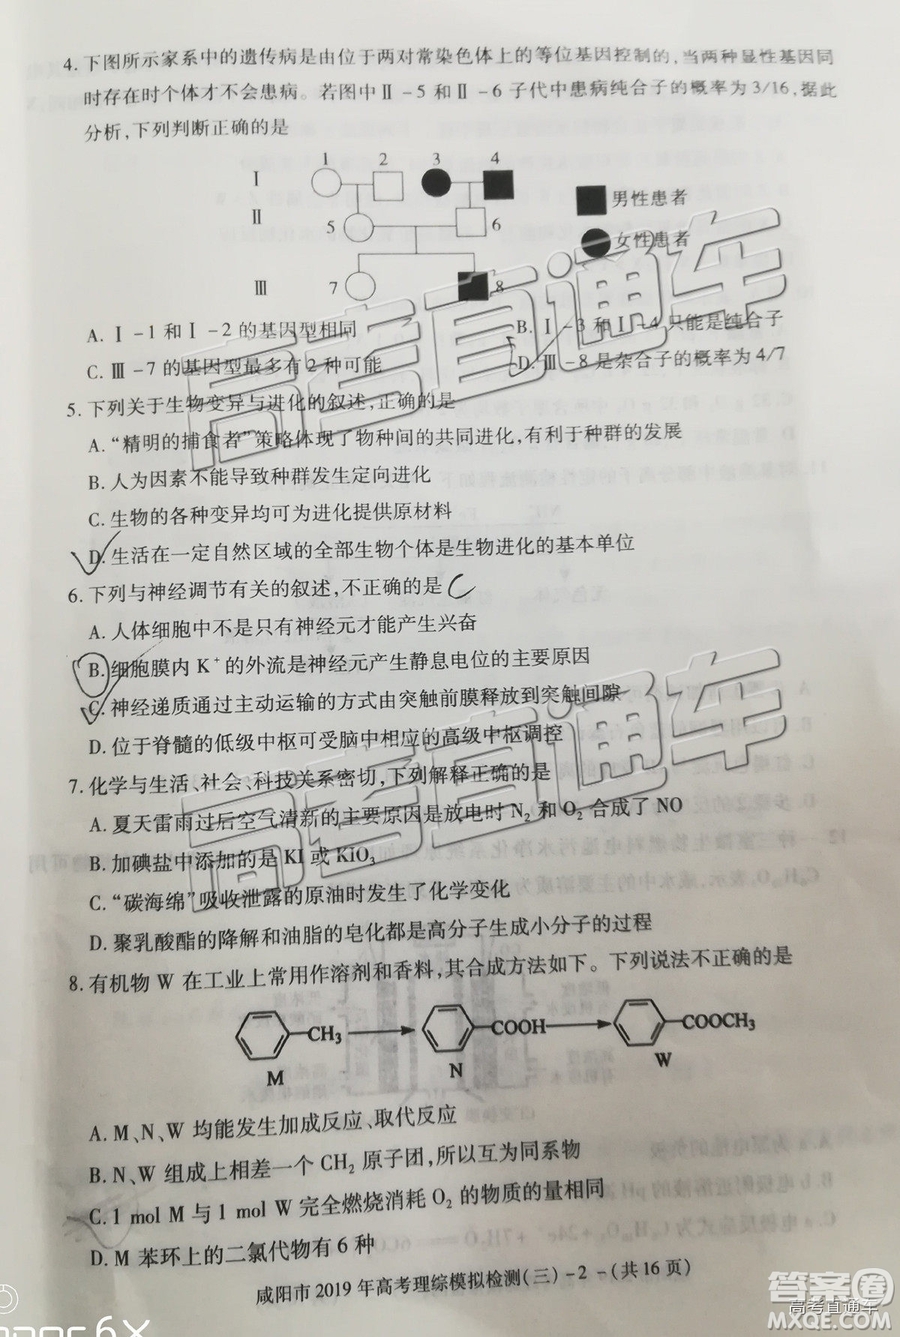 4. 下图所示家系中的遗传病是由位于两对常染色体上的等位基因控制的,当两种显性基因同
时存在时个体才不会患病。若图中Ⅱ-5和Ⅱ-6子代中患病纯合子的概率为3/16,据此
分析,下列判断正确的是
1 2 3 4
Ⅰ
男性患者
Ⅱ
5 6
女性患者
Ⅲ 7 8
A. Ⅰ-1和Ⅰ-2的基因型相同 B. Ⅰ-3和Ⅰ-4只能是纯合子
C. Ⅲ-7的基因型最多有2种可能 D. Ⅲ-8是杂合子的概率为4/7
5. 下列关于生物变异与进化的叙述,正确的是
A. “精明的捕食者”策略体现了物种间的共同进化,有利于种群的发展
B. 人为因素不能导致种群发生定向进化
C. 生物的各种变异均可为进化提供原材料
D. 生活在一定自然区域的全部生物个体是生物进化的基本单位
6. 下列与神经调节有关的叙述,不正确的是 C
A. 人体细胞中不是只有神经元才能产生兴奋
B. 细胞膜内K⁺的外流是神经元产生静息电位的主要原因
C. 神经递质通过主动运输的方式由突触前膜释放到突触间隙
D. 位于脊髓的低级中枢可受脑中相应的高级中枢调控
7. 化学与生活、社会、科技关系密切,下列解释正确的是
A. 夏天雷雨过后空气清新的主要原因是放电时N₂和O₂合成了NO
B. 加碘盐中添加的是KI或KiO₃
C. “碳海绵”吸收泄露的原油时发生了化学变化
D. 聚乳酸酯的降解和油脂的皂化都是高分子生成小分子的过程
8. 有机物W在工业上常用作溶剂和香料,其合成方法如下。下列说法不正确的是
CH₃ COOH COOCH₃
M N W
A. M、N、W均能发生加成反应、取代反应
B. N、W组成上相差一个CH₂原子团,所以互为同系物
C. 1 mol M与1 mol W完全燃烧消耗O₂的物质的量相同
D. M苯环上的二氯代物有6种
咸阳市2019年高考理综模拟检测(三)-2-(共16页)
高考直通车
高考直通车
答案圈
高考直通车
MXQE.COM